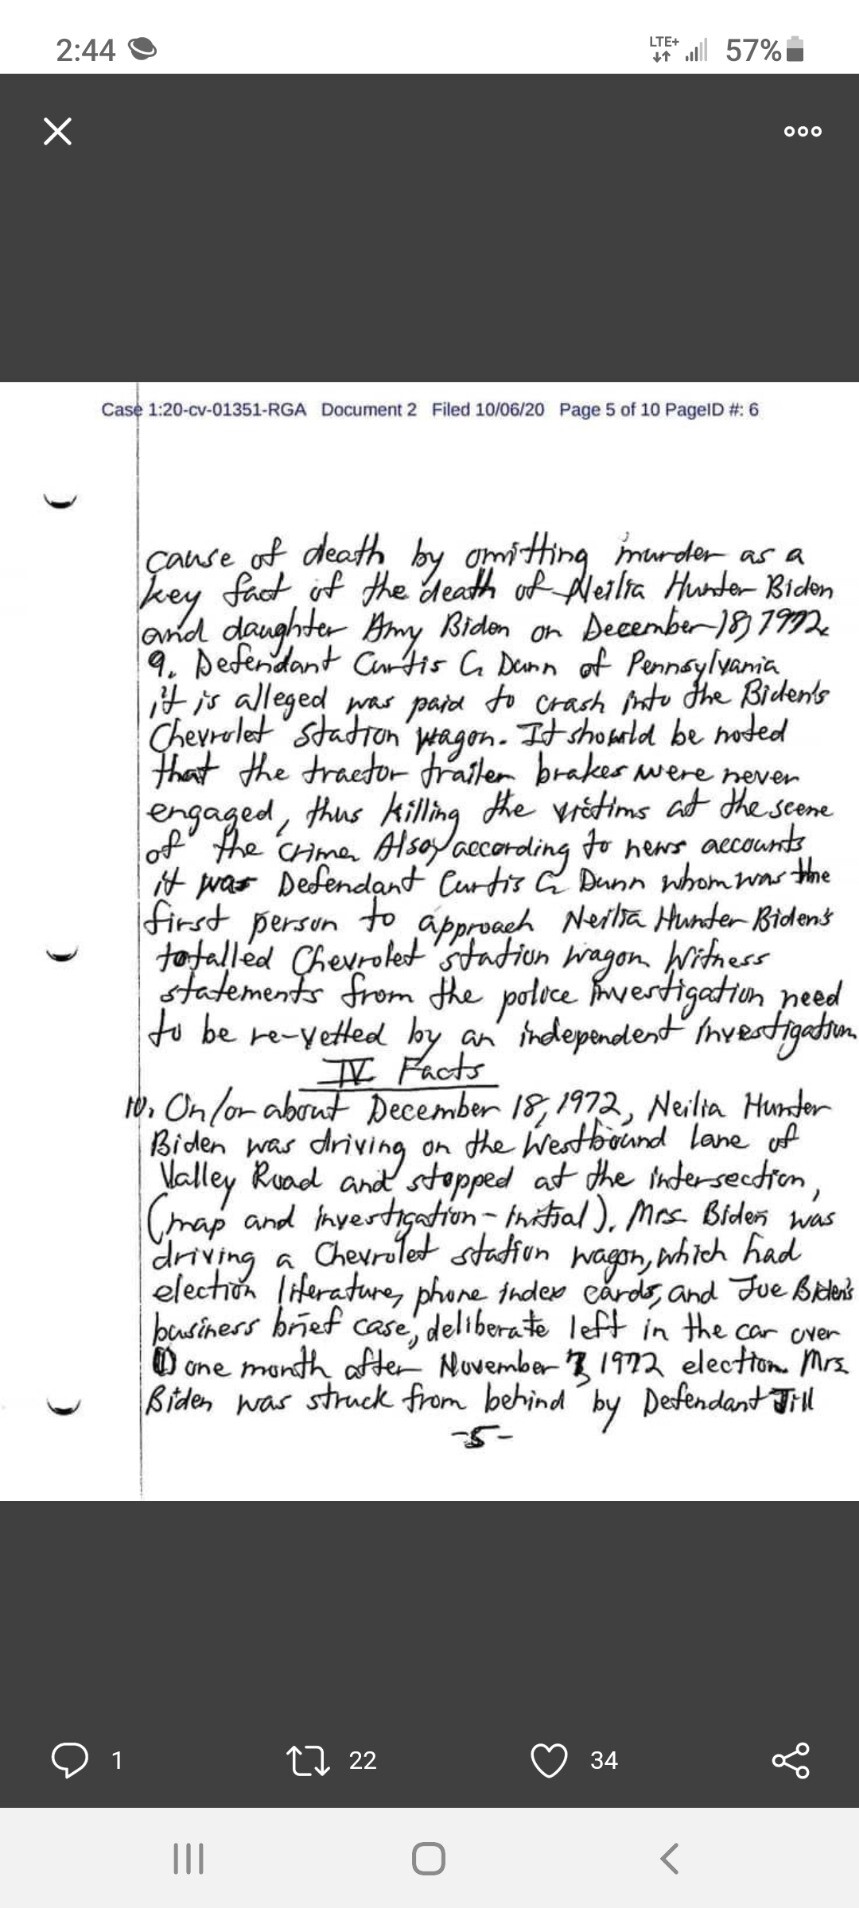 2:44
LTE+
57%
Case 1:20-cv-01351-RGA Document 2 Filed 10/06/20 Page 5 of 10 PageID #: 6
cause of death by omitting murder as a
key fact of the death of Neilia Hunter Biden
and daughter Amy Biden on December 18, 1972.
9. Defendant Curtis C Dunn of Pennsylvania
it is alleged was paid to crash into the Biden's
Chevrolet Station wagon. It should be noted
that the tractor trailer brakes were never
engaged, thus killing the victims at the scene
of the crime. Also, according to news accounts
it was Defendant Curtis C Dunn whom was the
first person to approach Neilia Hunter Biden's
totalled Chevrolet station wagon. Witness
statements from the poloce investigation need
to be re-vetted by an independent investigation.
IV Facts
10. On/or about December 18, 1972, Neilia Hunter
Biden was driving on the Westbound lane of
Valley Road and stopped at the intersection,
(map and investigation - initial). Mrs. Biden was
driving a Chevrolet station wagon, which had
election literature, phone index cards, and Joe Biden's
business brief case, deliberate left in the car over
(1) one month after November 7, 1972 election. Mrs.
Biden was struck from behind by Defendant Jill
-5-
1
22
34